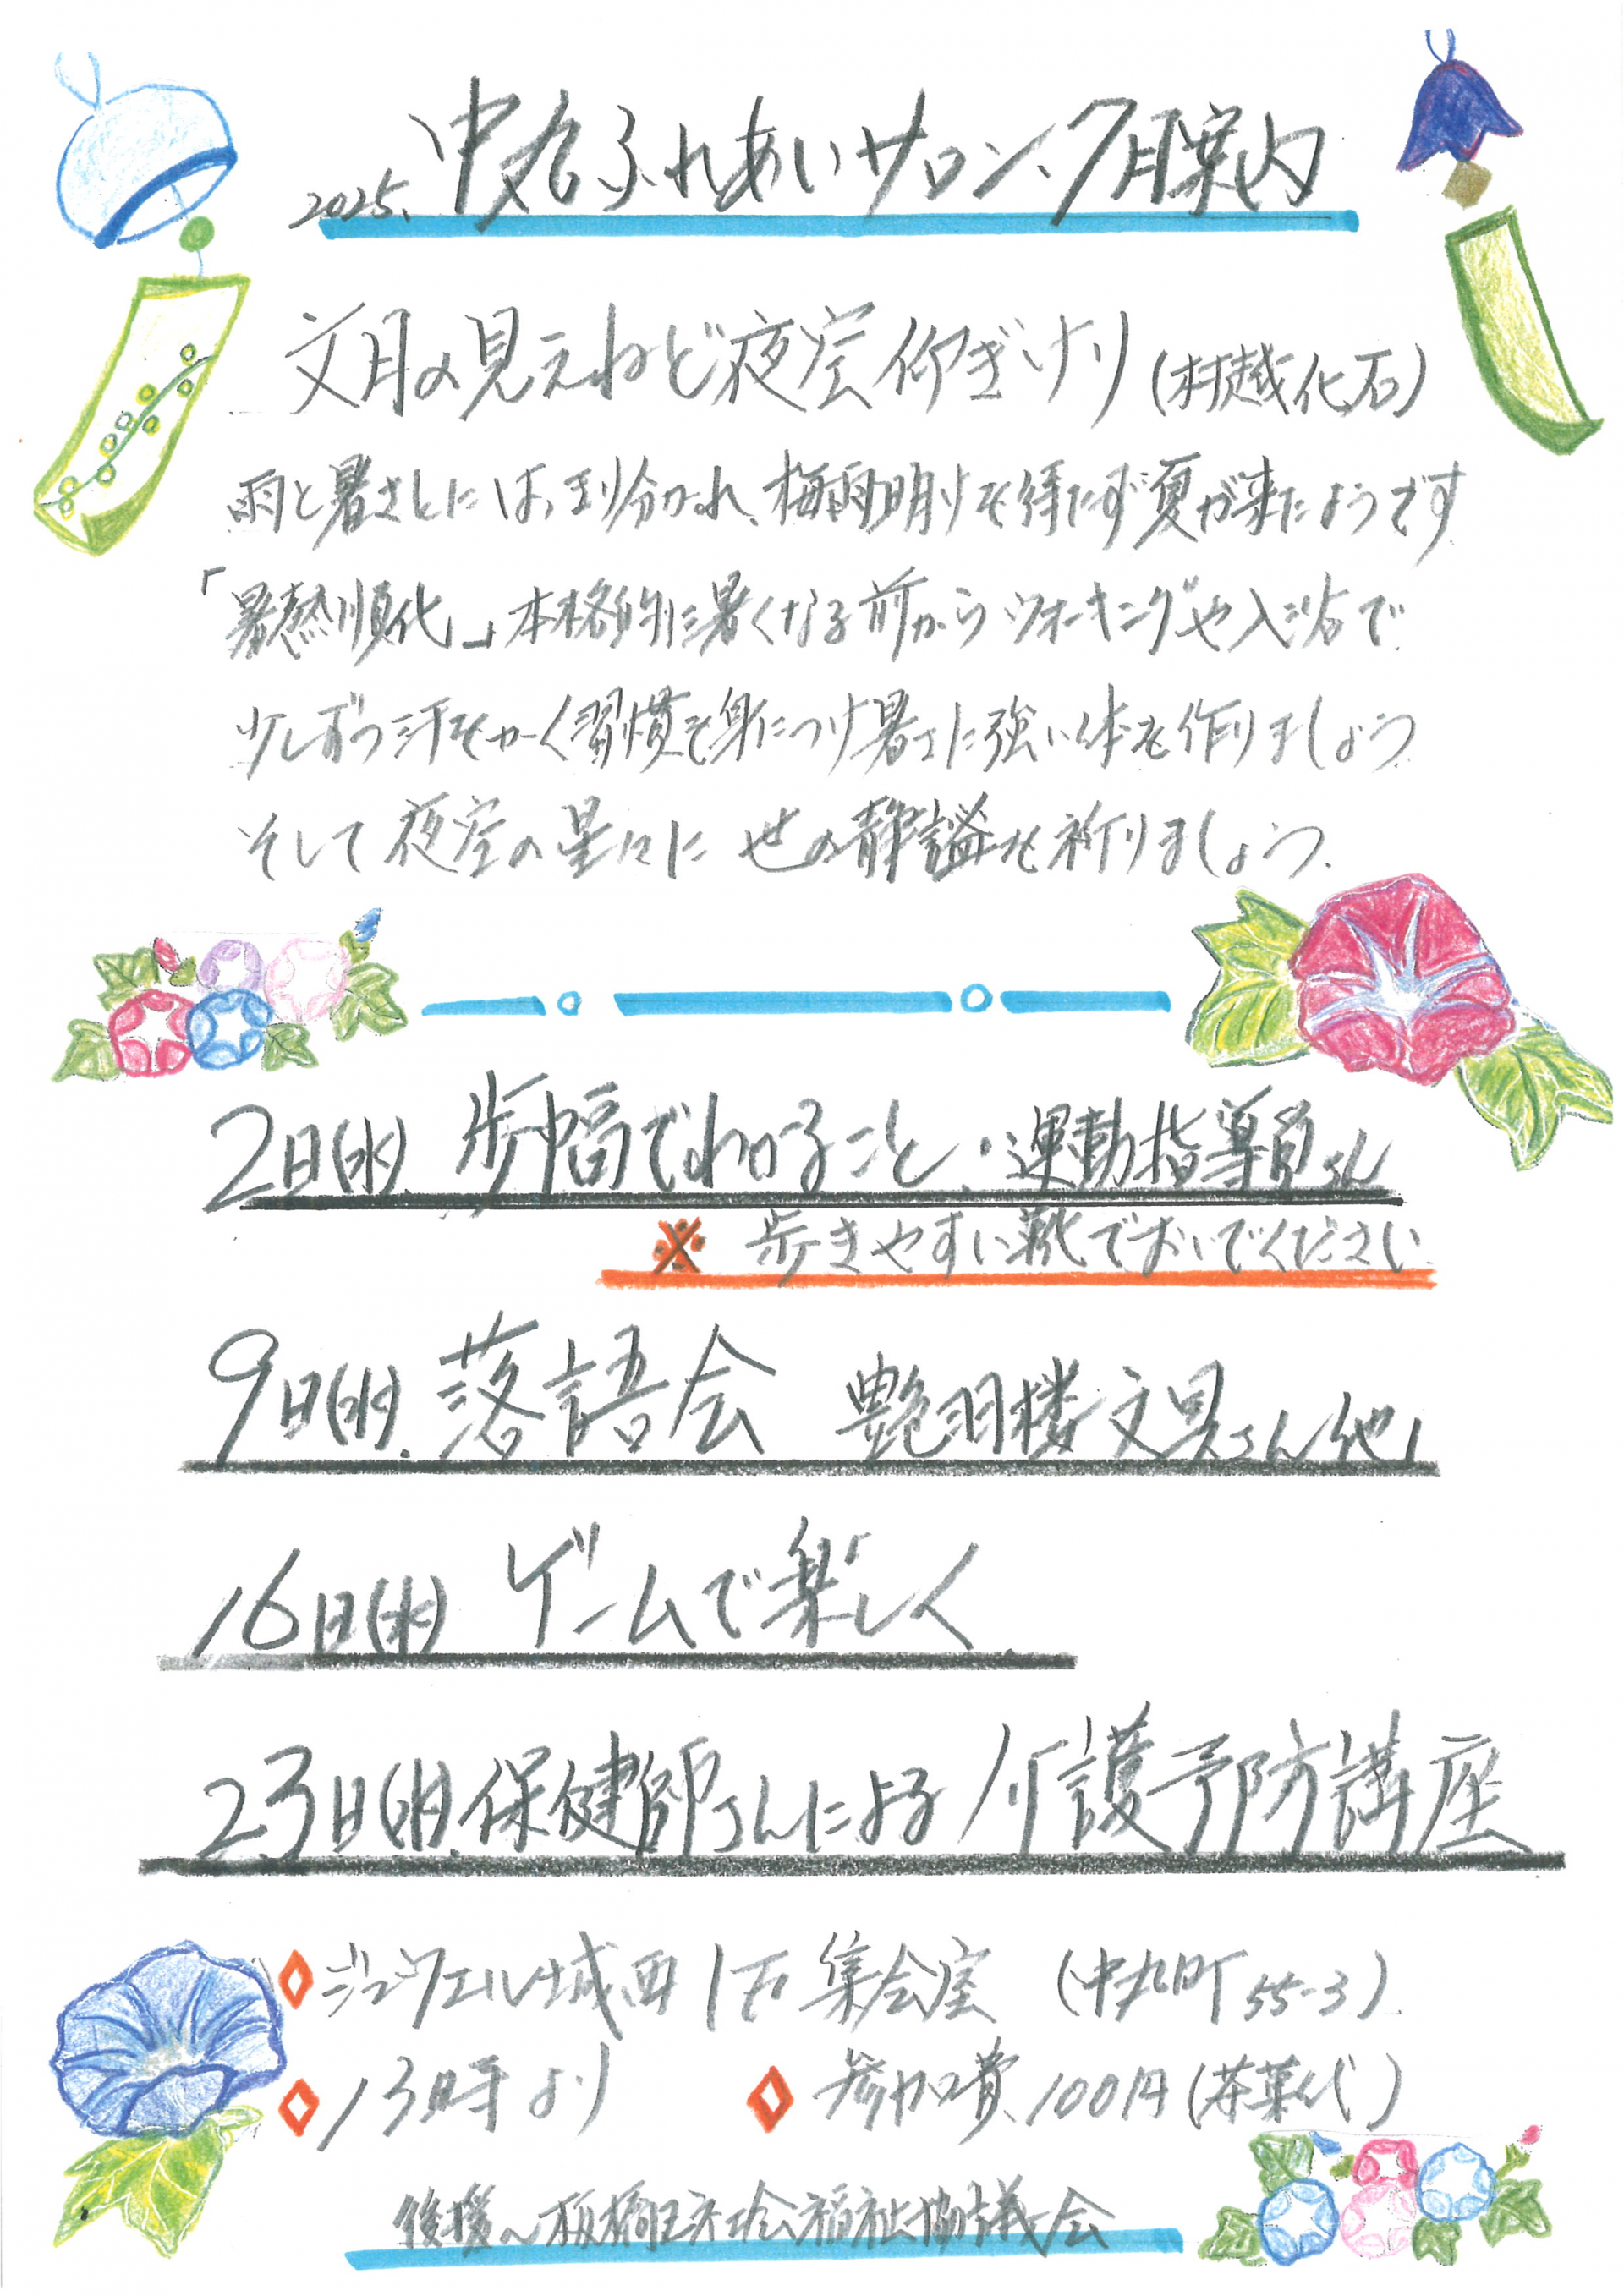 2025. 中丸ふれあいサロン、7月案内
文月の見えねど夜空仰ぎけり(村越化石)
雨と暑さとには、まり分かれ、梅雨明けを待たず夏が来たようです
「暑熱順化」本格的に暑くなる前からウォーキングや入浴で
少しずつ汗をかく習慣を身につけ暑さに強い体を作りましょう
そして夜空の星々に 世の静謐を祈りましょう.
2日(水). 歩幅でわかること.・運動指導員さん
※ 歩きやすい靴でおいでください
9日(水). 落語会 艶羽楼文具さん他
16日(水) ゲームで楽しく
23日(水).保健師さんによる介護予防講座
ジュウェル城西1F 集会室 (中丸町55-3)
13時より 参加費、100円(茶菓代)
後援~板橋区社会福祉協議会